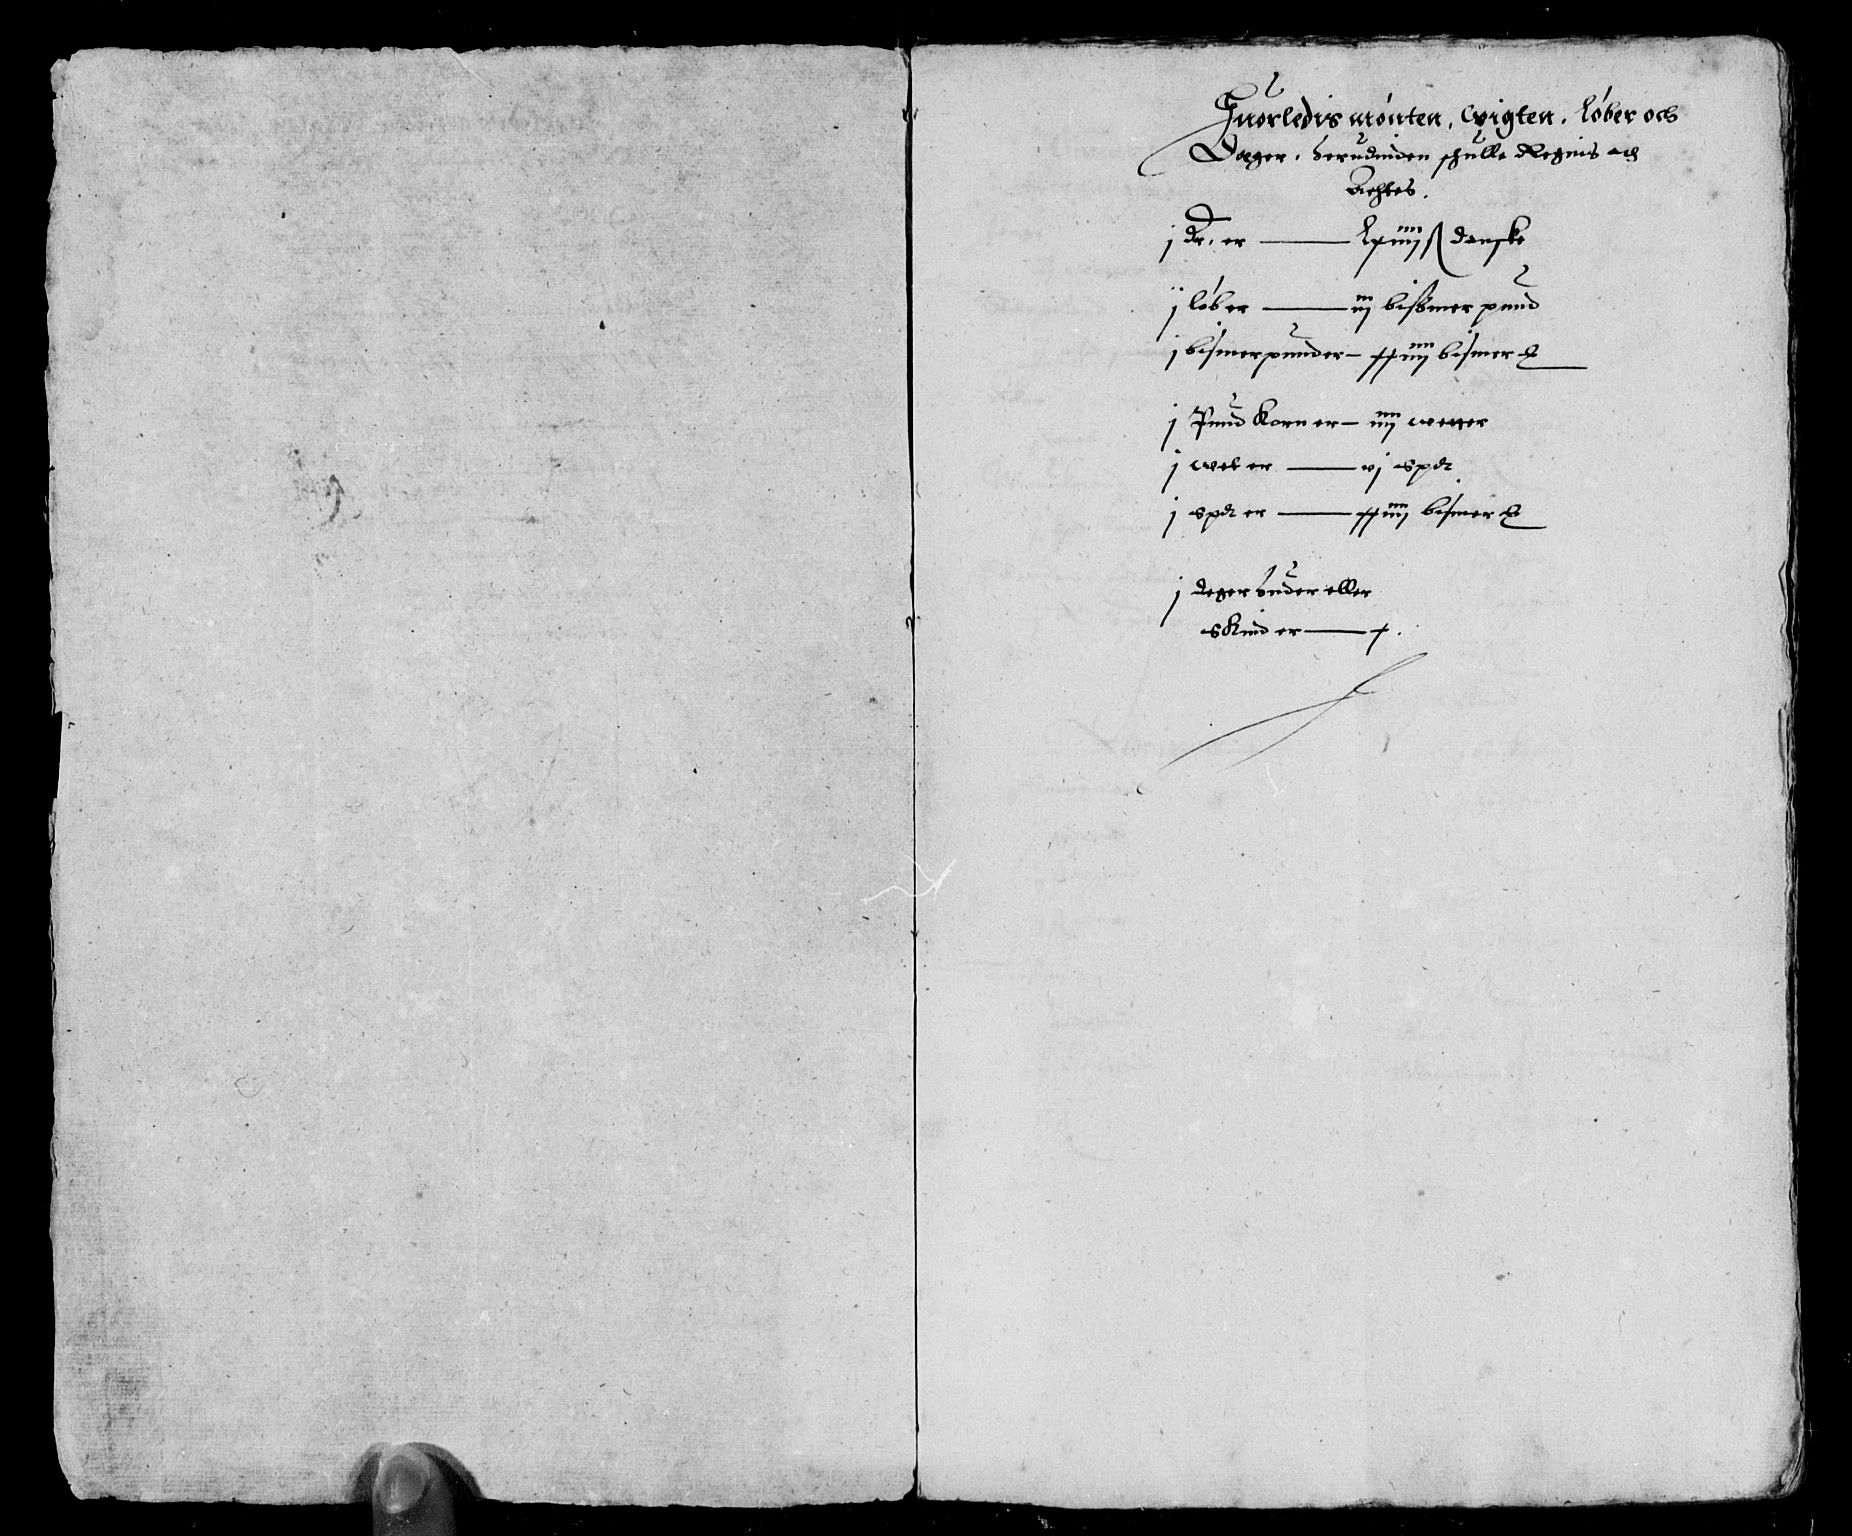 Huorledis mönten, Wigten, löber och
Deger, herudinden schulle Regnis och
Achtes.
j dr. er — lxiiij ß danske
ij löber — iij bissmer pund
j bismer punder — xxiiij bismer ℔
j Pund Korn er — iiij wetter
j wet er — vj spdt
j spdt er — xxiiij bismer ℔
j deger huder eller
skind er — x.